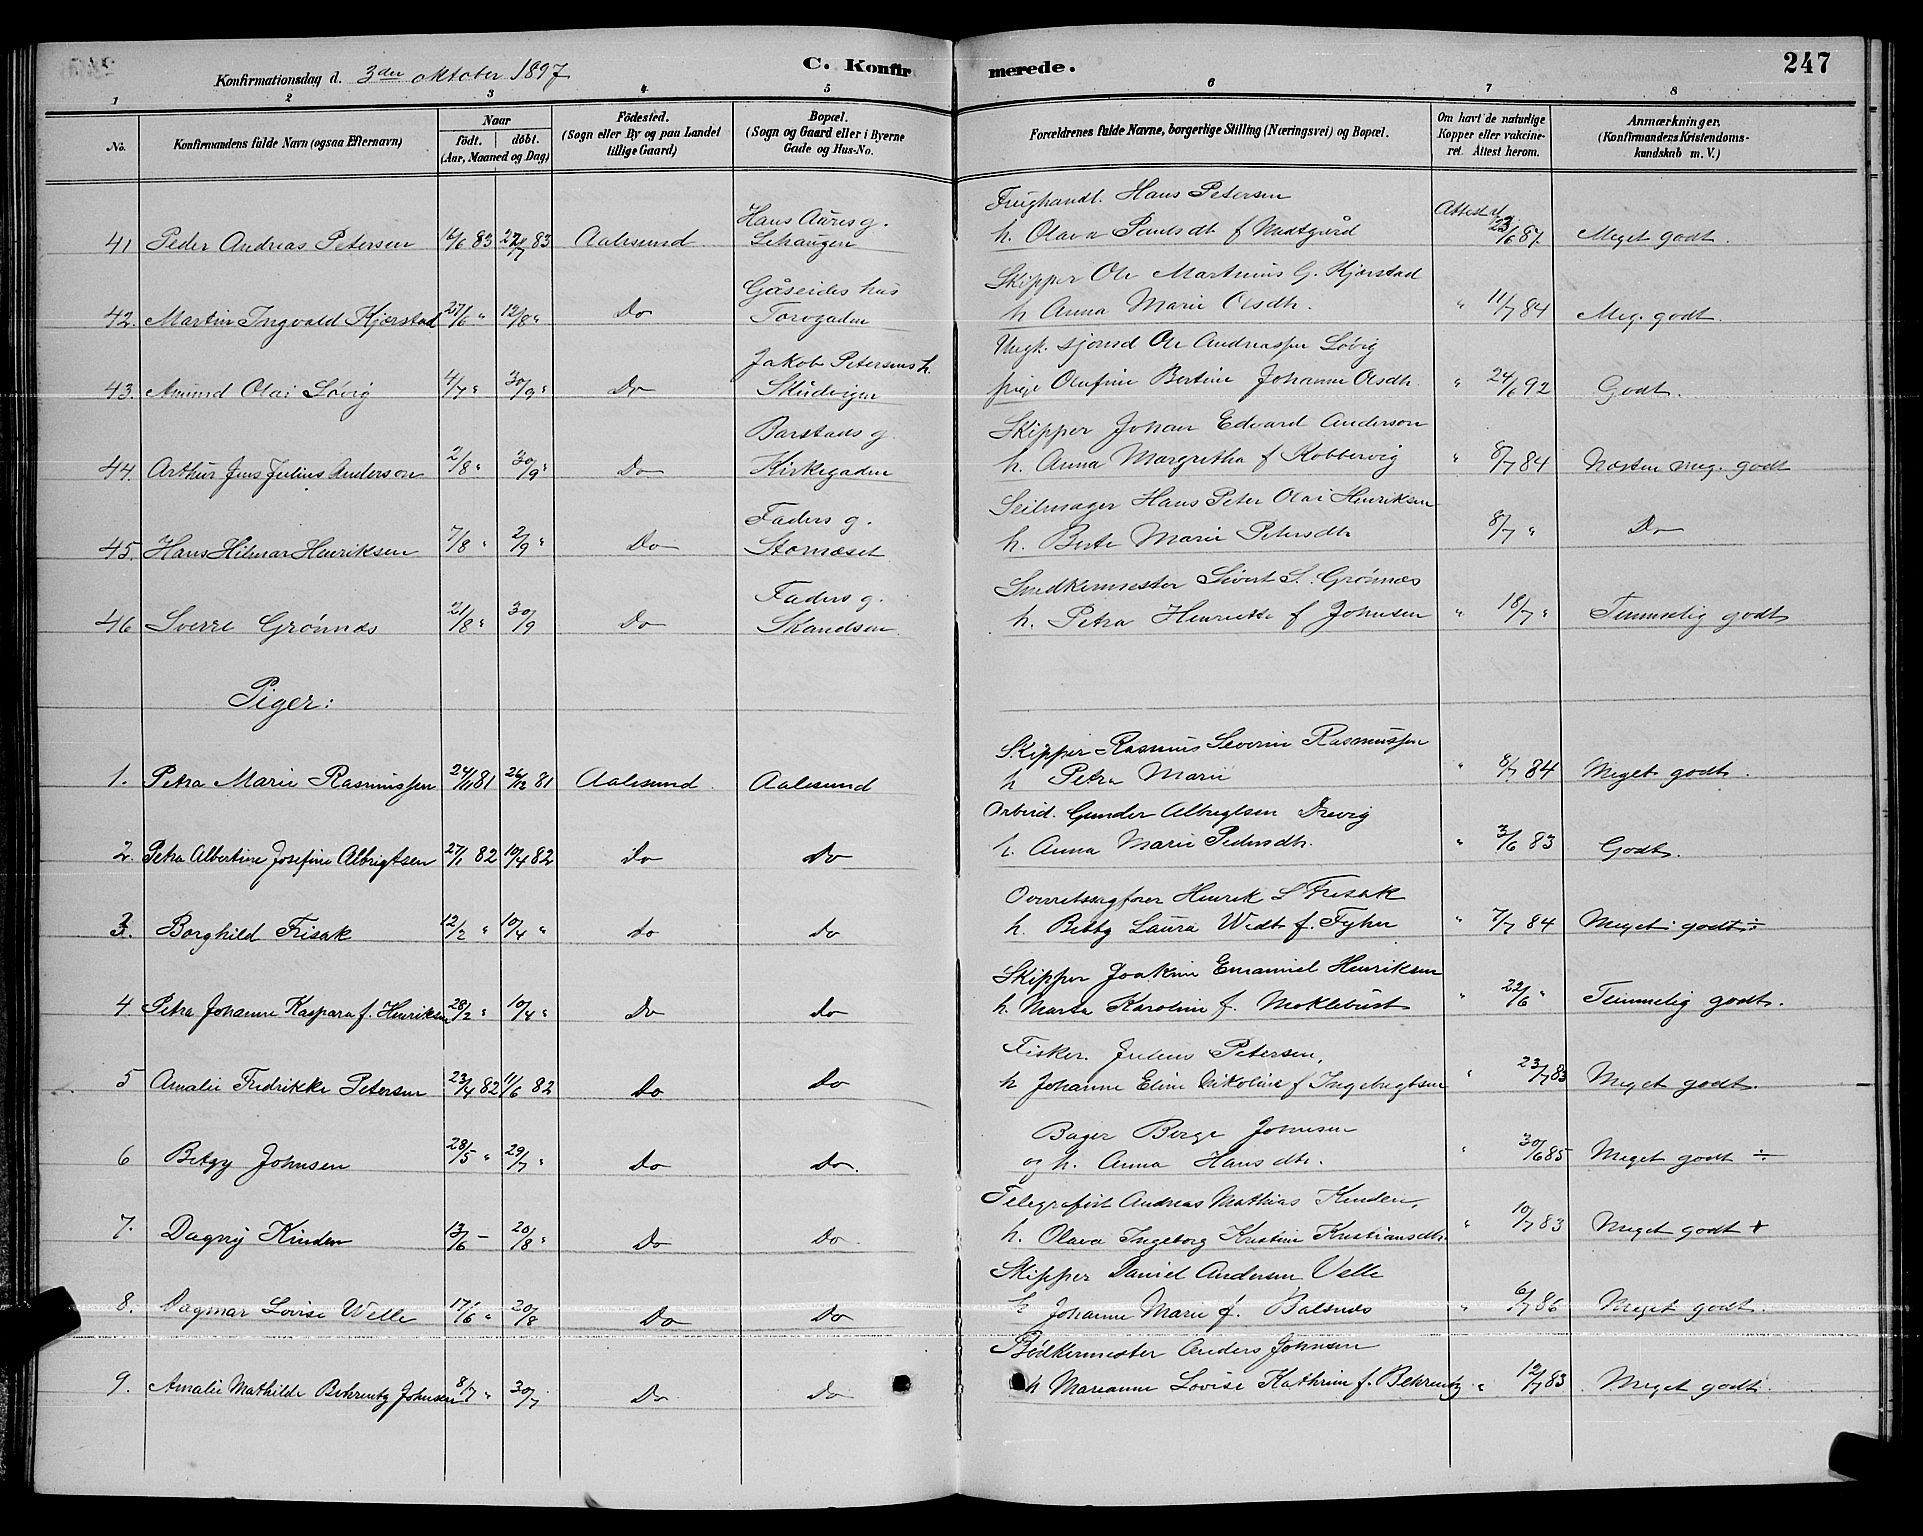 247
Konfirmationsdag d. 3die oktober 1897
C. Konfirmerede.
1 2 3 4 5 6 7 8
No.
Konfirmandens fulde Navn (ogsaa Efternavn)
Naar
født. døbt.
(Aar, Maaned og Dag)
Fødested.
(Sogn eller By og paa Landet
tillige Gaard)
Bopæl.
(Sogn og Gaard eller i Byerne
Gade og Hus-No.
Forældrenes fulde Navne, borgerlige Stilling (Næringsvei) og Bopæl.
Om havt de naturlige
Kopper eller vakcine-
ret. Attest herom.
Anmærkninger,
(Konfirmandens Kristendoms-
kundskab m. V.)
Hans Aures g. Hans Petersen Attest
41 Peder Andreas Petersen 83 83 Aalesund h. Olava 23/6 87 Meget godt.
Gåseides hus Skipper Ole Martinus G. Kjærstad
42. Martin Ingvald Kjærstad 27/6 " 12/8 " Do h Anna Marie Olsdtr. " 11/7 84 Meg. godt.
Jakob Petersens h. Ungk. Ole Andreassen Løvig
43. Amund Olai Løvig 4/7 " 30/9 " Do pige Olufine Bertine Johanne Olsdtr. " 24/6 92 Godt.
Barstads g. Skipper Johan Edvard Anderson
44. Arthur Jens Julius Anderson 2/8 " 30/9 " Do Kirkegaden h. Anna Margretha f Kobbervig " 8/7 84 Næsten meg. godt
Faders g. Seilmager Hans Peter Olai Henriksen
45. Hans Hilmar Henriksen 7/8 " 2/9 " Do Stornæset h. Berte Marie Petersdtr. 8/7 " Do
Faders g. Smedkermester Sivert S. Grønnæs
46 Sverre Grønnæs 21/8 " 30/9 Do Skandsen h. Petra Henriette f Johnsen " 18/7 " Temmelig godt
Piger:
Skipper Rasmus Severin Rasmussen
1. Petra Marie Rasmussen 24/11 81 26/12 81 Aalesund. Aalesund h Petra Marie " 8/7 84 Meget godt.
Arbeid. Gunder Albregtsen Drevig
2. Petra Albertine Josefine Albrigtsen 27/1 82 10/4 82 Do Do h. Anna Marie Pedersdtr. " 3/6 83 Godt.
Overretssagfører Henrik L Frisak
3. Borghild Frisak 12/2 " 10/4 " Do Do h. Betty Laura Wedt f. " 7/7 84 Meget godt ÷
Skipper Joakim Emanuel Henriksen
4 Petra Johanne Kaspara f. Henriksen 28/2 " 10/4 " Do Do h. Marta Karoline f. Moklebust " 22/6 " Temmelig godt.
Fisker. Julius Petersen,
5 Amalie Fredrikke Petersen 23/4 82 11/6 82 Do Do h Johanne Eline Nikoline f Ingebrigtsen " 23/7 83 Meget godt.
Bager Berge Johnsen
6 Betzy Johnsen 28/5 " 29/7 " Do Do. og h. Anna Hansdtr. " 30/6 85 Meget godt ÷
Telegrafist Andreas Mathias Kinden,
7. Dagny Kinden 13/6 - 20/8 " Do Do. h. Olava Ingeborg Kristine Kristiansdtr. " 10/7 83 Meget godt +
Skipper Daniel Andersen Velle
8. Dagmar Lovise Welle 17/6 " 20/8 Do Do h Johanne Marie f. Balsnes " 6/7 86 Meget godt.
Bødkermester Anders Johnsen
9. Amalie Mathilde Behrentz Johnsen 8/7 " 30/7 Do Do h Marianne Lovise Kathrine f. Behrentz " 12/7 83 Meget godt.